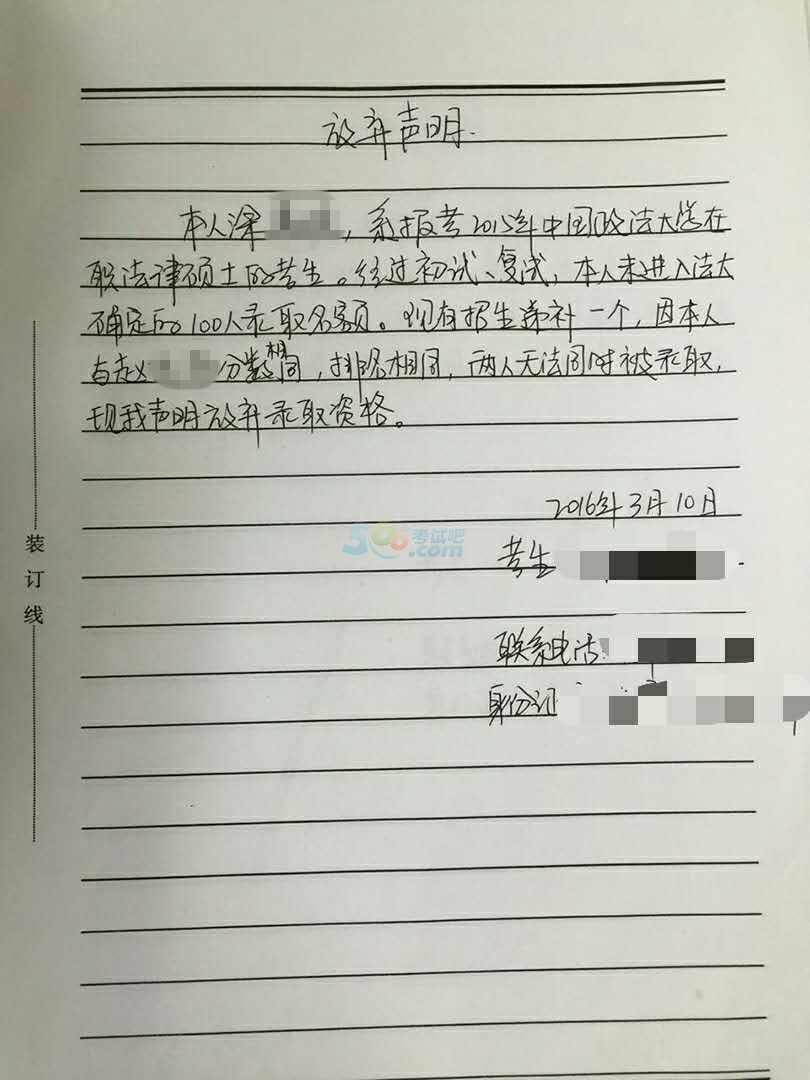 放弃声明.
本人涂，系报考2015年中国政法大学在
职法律硕士的考生。经过初试、复试，本人未进入法大
确定的100人录取名额。现有招生递补一个，因本人
与赵分数相同，排名相同，两人无法同时被录取，
现我声明放弃录取资格。
2016年3月10日
566考试吧
.com
考生
联系电话:
身份证
装订线